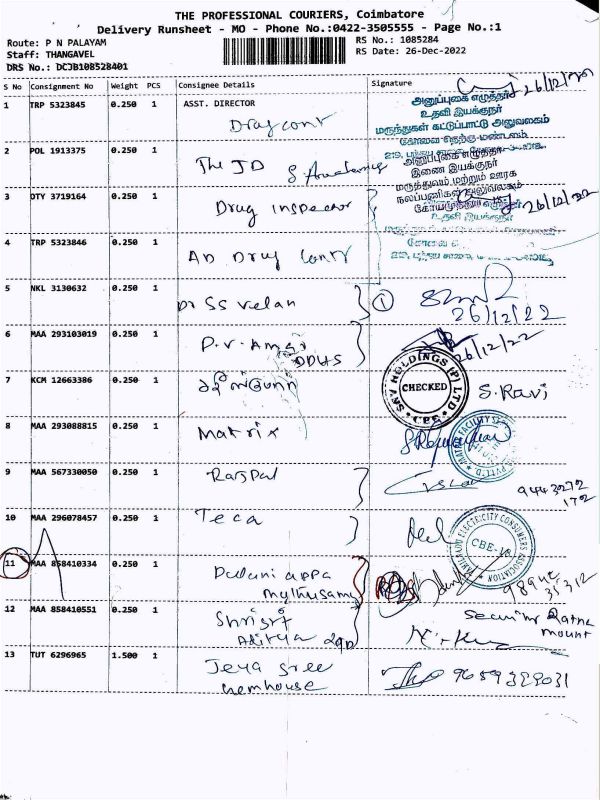 THE PROFESSIONAL COURIERS, Coimbatore
Delivery Runsheet - MO - Phone No.:0422-3505555 - Page No.:1
Route: P N PALAYAM
RS No.: 1085284
Staff: THANGAVEL
RS Date: 26-Dec-2022
DRS No.: DCJB108528401
S No Consignment No Weight PCS Consignee Details Signature
26/12/22
1 TRP 5323845 0.250 1 ASST. DIRECTOR
Drug cont
அனுப்புகை எழுத்தர்
உதவி இயக்குநர்
மருந்துகள் கட்டுப்பாட்டு அலுவலகம்
கோவை தெற்கு மண்டலம்
2 POL 1913375 0.250 1
The JD
அனுப்புகை எழுத்தர்
இணை இயக்குநர்
மருத்துவம் மற்றும் ஊரக
நலப்பணிகள்
3 DTY 3719164 0.250 1
Drug inspector
26/12/22
உதவி இயக்குநர்
4 TRP 5323846 0.250 1
AD Drug Contr
5 NKL 3130632 0.250 1
Dr SS Velan
1
26/12/22
6 MAA 293103019 0.250 1
P.V.
DDHS
26/12/22
7 KCM 12663386 0.250 1
SKY HOLDINGS (P) LTD
CHECKED
CBE
S. Ravi
8 MAA 293088815 0.250 1
Matrix
9 MAA 567330050 0.250 1
Rajpal
9443272
172
10 MAA 296078457 0.250 1
Teca
TAMILNADU ELECTRICITY CONSUMERS ASSOCIATION
11 MAA 858410334 0.250 1
Palani appa
Muthusamy
98942
35312
12 MAA 858410551 0.250 1
Shrisri
Aditya
Security Ratna
mount
13 TUT 6296965 1.500 1
Jeya Sree
Chemhouse
9659329031